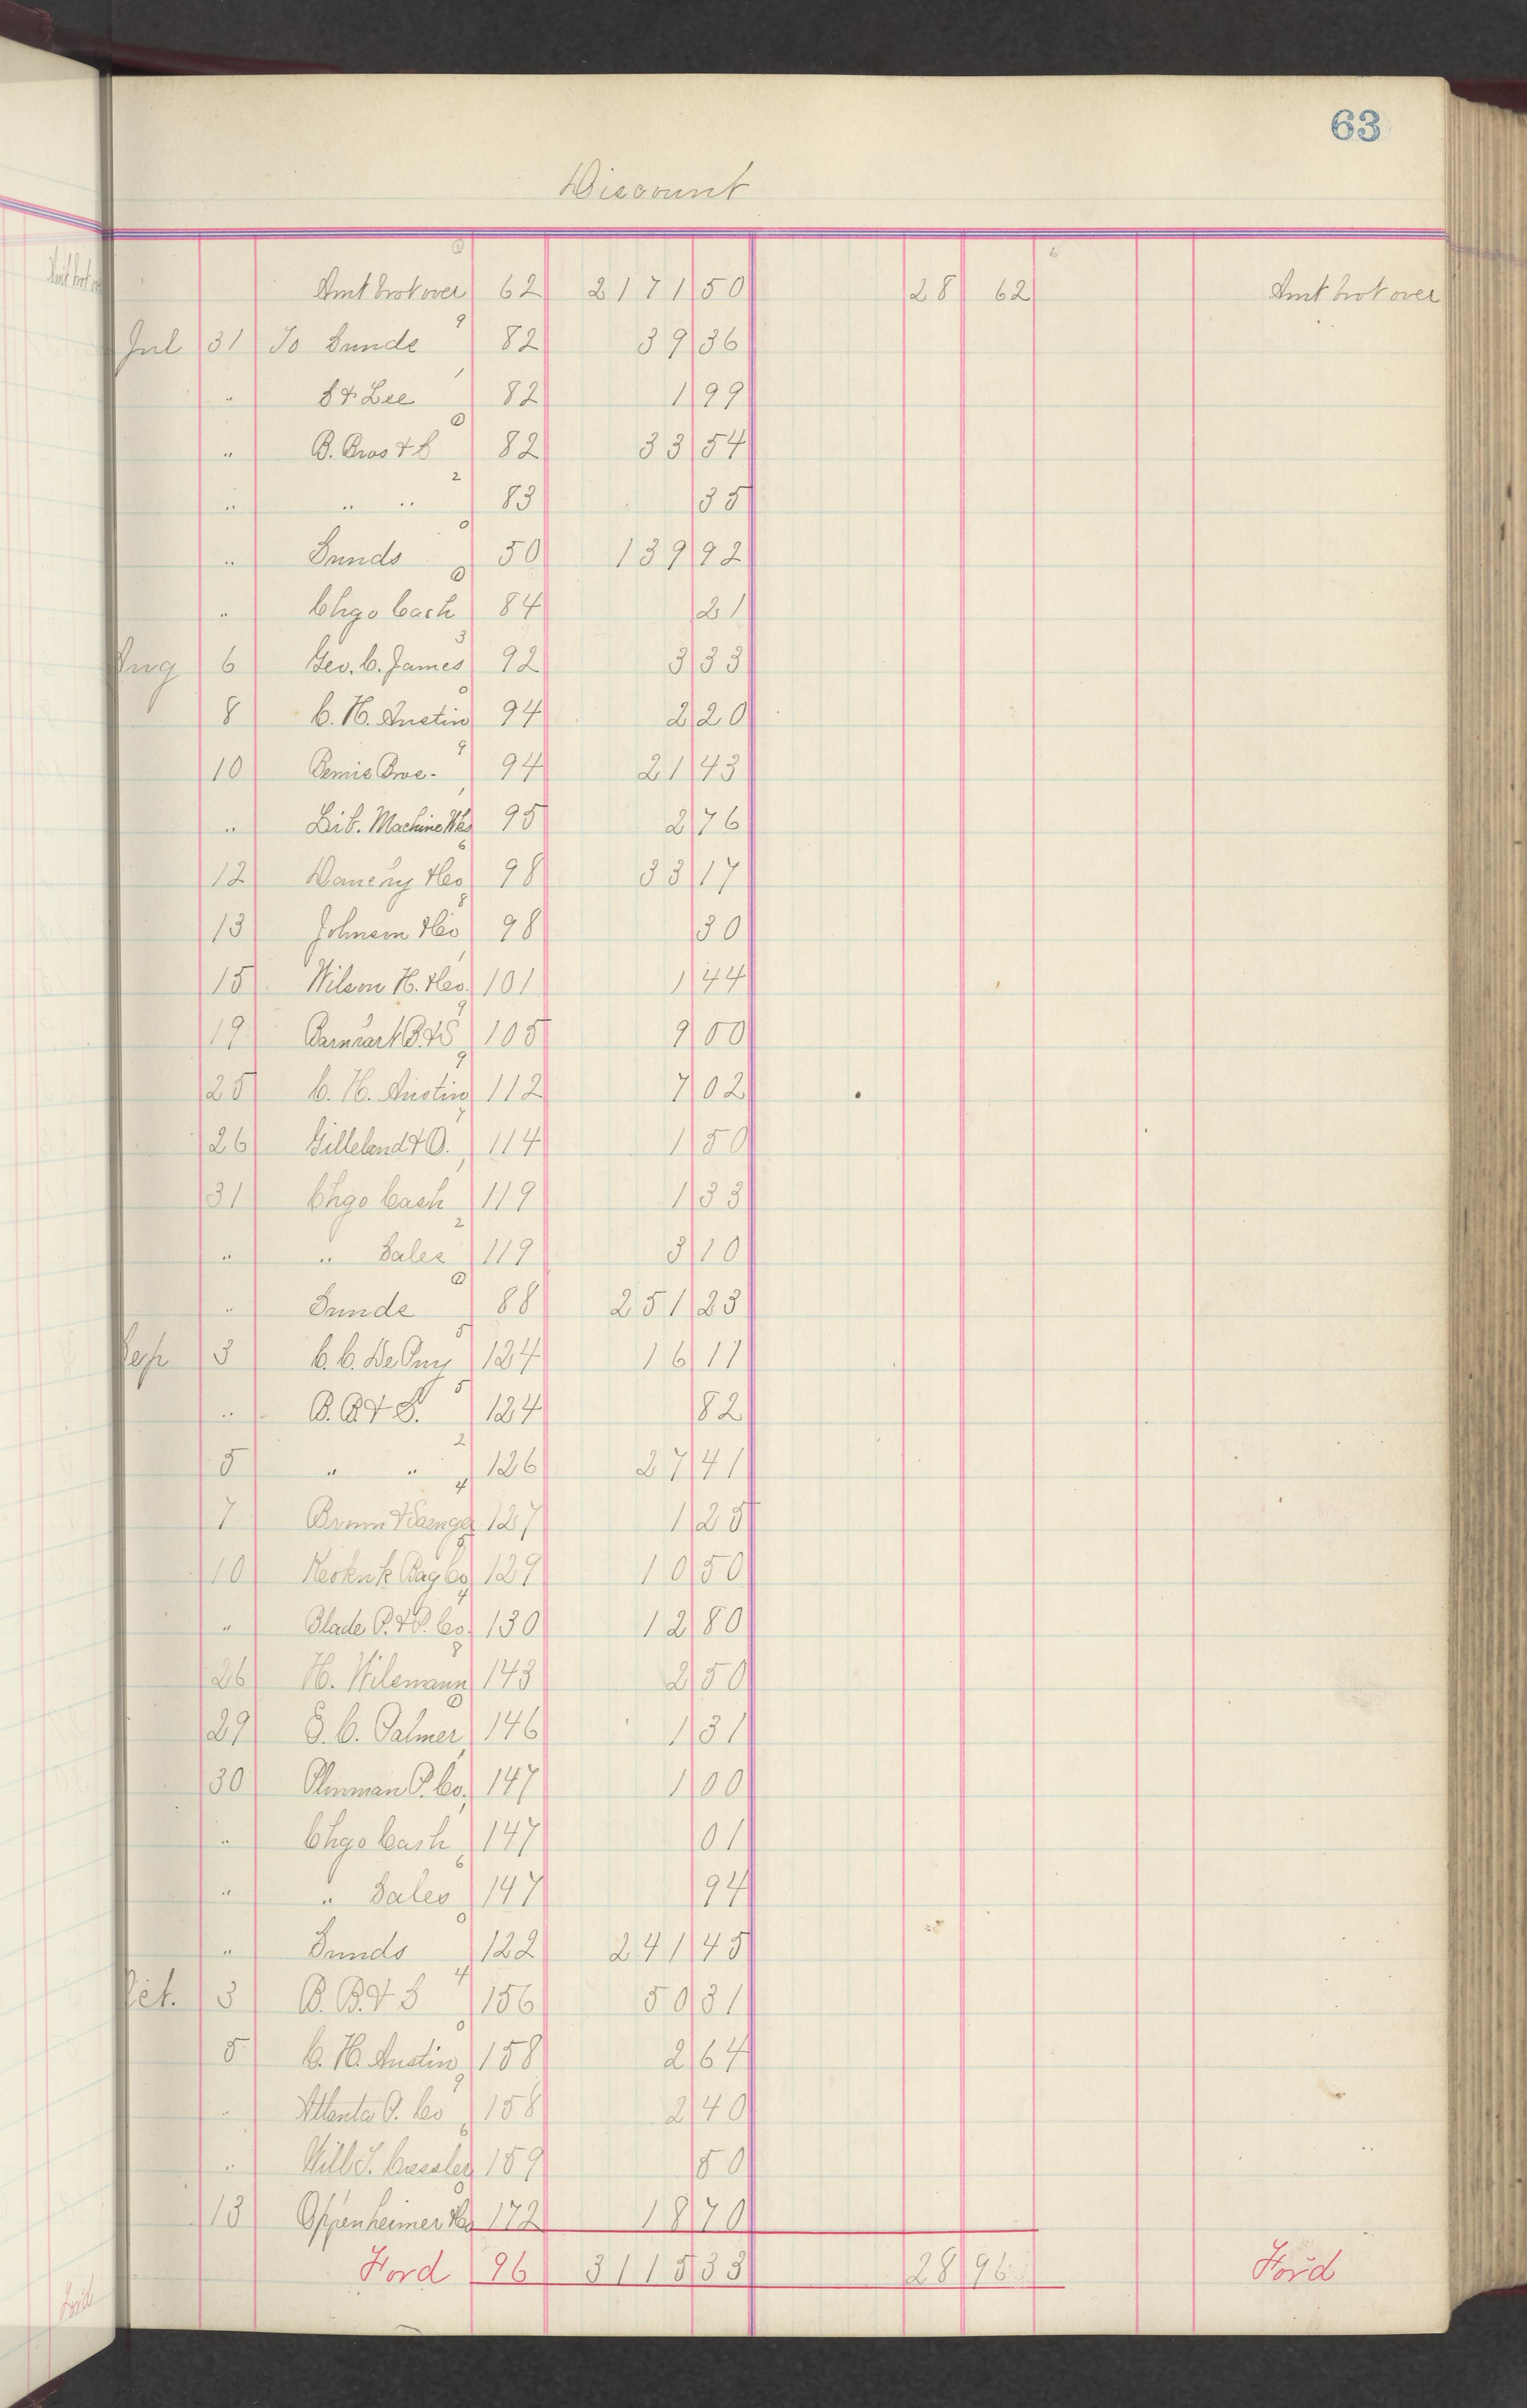 63
Discount
Amt brot over 62 2171 50 28 62 Amt brot over
Jul 31 To Sunds 82 39 36
" S & Lee 82 1 99
" B. Bros & S 82 33 54
" " " 83 35
" Sunds 50 139 92
" Chgo Cash 84 21
Aug 6 Geo. C. James 92 3 33
8 C. H. Austin 94 2 20
10 Bemis Bros. 94 21 43
" Lib. Machine Wks 95 2 76
12 &Co 98 33 17
13 Johnson &Co 98 30
15 Wilson H. &Co. 101 1 44
19 B.&S 105 9 00
25 C. H. Austin 112 7 02
26 Gilleland & O. 114 1 50
31 Chgo Cash 119 1 33
" " Sales 119 3 10
" Sunds 88 251 23
Sep 3 C. C. DePuy 124 16 11
" B. B. & S. 124 82
5 " " 126 27 41
7 127 1 25
10 Keokuk Bag Co 129 10 50
" P. & P. Co. 130 12 80
26 H. Wilemann 143 2 50
29 S. C. Palmer 146 1 31
30 P. Co. 147 1 00
" Chgo Cash 147 01
" " Sales 147 94
" Sunds 122 241 45
Oct. 3 B. B. & S 156 50 31
5 C. H. Austin 158 2 64
" Atlanta P. Co 158 2 40
" Will S. 159 50
13 Oppenheimer &Co 172 18 70
Ford 96 3115 33 28 96 Ford